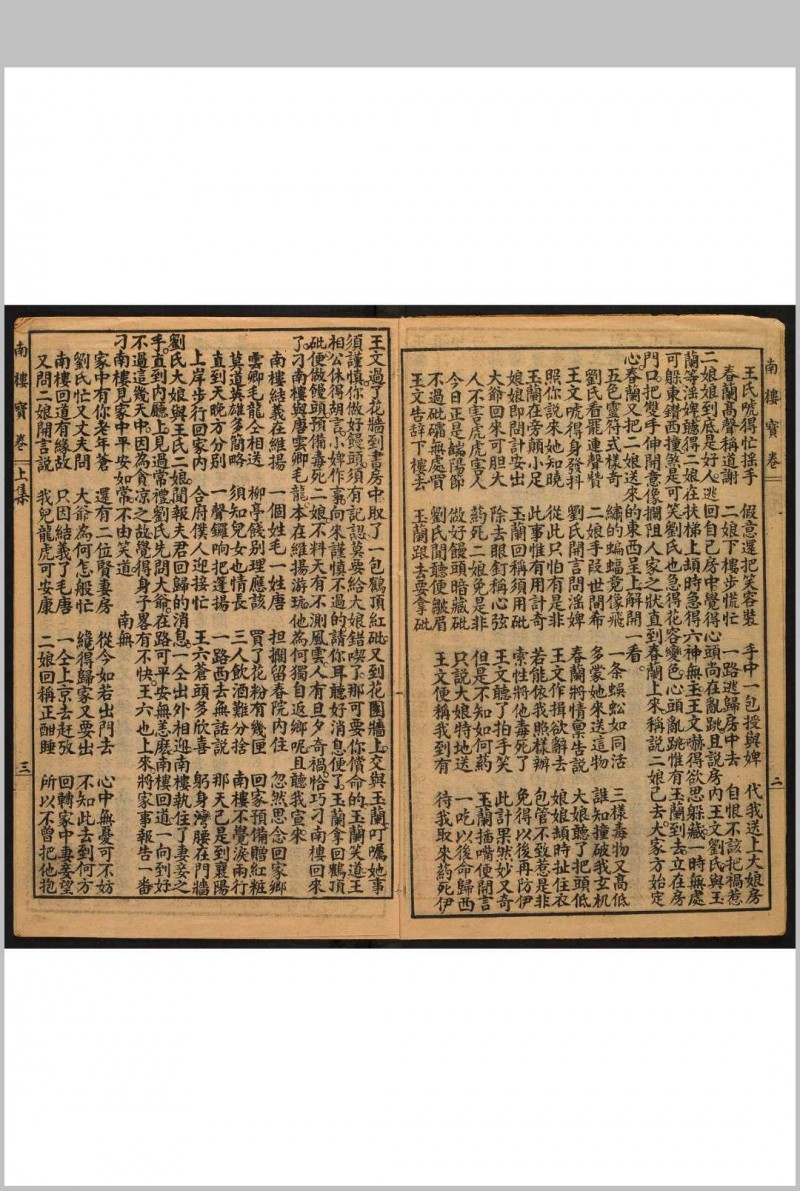 南樓寶卷 二
王氏唬得忙搖手 假意還把笑容裝 手中一包授與婢 代我送上大娘房
春蘭高聲稱道謝 二娘下樓步慌忙 一路逃歸房中去 自恨不該把禍惹
二娘娘到底是好人逃回自己房中覺得心頭尚在亂跳且説房內王文劉氏與玉
蘭等淫婢聽得二娘在扶梯上頭時急得六神無主王文嚇得欲思躲藏一時無處
可躲東鑽西撞煞是可笑劉氏也急得花容變色心頭亂跳惟有玉蘭到去立在房
門口把雙手伸開意像攔阻人家之狀直到春蘭上來稱説二娘已去大家方始定
心春蘭又把二娘送來的東西呈上解開一看。
五色靈符式樣奇 繡的蝙蝠竟像飛 一條蜈蚣如同活 三樣毒物又高低
劉氏看罷連聲讚 二娘手段世間希 多蒙她來送這物 誰知撞破我玄机
王文唬得身發抖 劉氏開言問淫婢 春蘭將情禀告説 大娘聽了把頭低
照你説來她知曉 從此只怕有是非 王文作揖欲辭去 娘娘頦時扯住衣
玉蘭在旁顛小足 此事惟有用計奇 若能依我照樣辦 包管不致惹是非
娘娘即問計安出 玉蘭回稱須用砒 索性將他毒死了 免得以後再防伊
大爺回來可胆大 除去眼釘稱心弦 王文聽了拍手笑 此計果然妙又奇
人不害虎虎害人 葯死二娘免是非 但是不知如何葯 玉蘭插嘴便開言
今日正是端陽節 做好饅頭暗藏砒 只說大娘特地送 一吃以後命歸西
不過砒礵無處買 劉氏聞聽便皺眉 王文便稱我到有 待我取來葯死伊
王文告辞下樓去 玉蘭跟去要拿砒
王文過了花牆到書房中取了一包鶴頂紅砒又到花園牆上交與玉蘭叮囑她事
須謹慎你做好饅頭須有記認莫要給大娘錯喫了那可要你償命的玉蘭笑道王
相公休得胡言小婢作事向來謹慎不過的請你耳聽好消息便了玉蘭拿回鶴頂
砒便做饅頭預備毒死二娘不料天有不測風雲人有旦夕奇禍恰巧刁南樓回來
了刁南樓與唐雲卿毛龍本在維揚游玩他為何獨自返鄉呢且聽我宣來
南樓結義在維揚 一個姓毛一姓唐 担擱留春院內住 忽然思念回家鄉
雲卿毛龍仝相送 柳亭餞别理應該 買了花粉有幾匣 回家預備贈紅粧
莫道英雄多簡略 須知兒女也情長 三人飲酒難分捨 南樓不覺淚兩行
直到天晚方分別 一聲鑼响把蓬揚 一路西去無話説 那天已是到襄陽
上岸步行回家內 合府僕人迎接忙 王六蒼頭多欣喜 躬身灣腰在門牆
劉氏大娘與王氏二娘聞報夫君回歸的消息一仝出外相迎南樓執住了妻妾之
手直到內廳上見過常禮劉氏先問大爺在路可平安無恙麽南樓回道一向到好
不過這幾天中因為貪凉之故覺得身子畧有不快王六也上來將家事報告一番
刁南樓見家中平安如常不由笑道 南無
家中有你老年蒼 還有二位賢妻房 從今如若出門去 心中無憂可不妨
劉氏忙又丈夫問 大爺為何怎般忙 纔得歸家又要出 不知此去到何方
南樓回道有緣故 只因結義了毛唐 一仝上京去赶攷 回轉家中妻妾望
又問二娘開言説 我兒龍虎可安康 二娘回稱正酣睡 所以不曾把他抱
南樓寶卷 上集 三